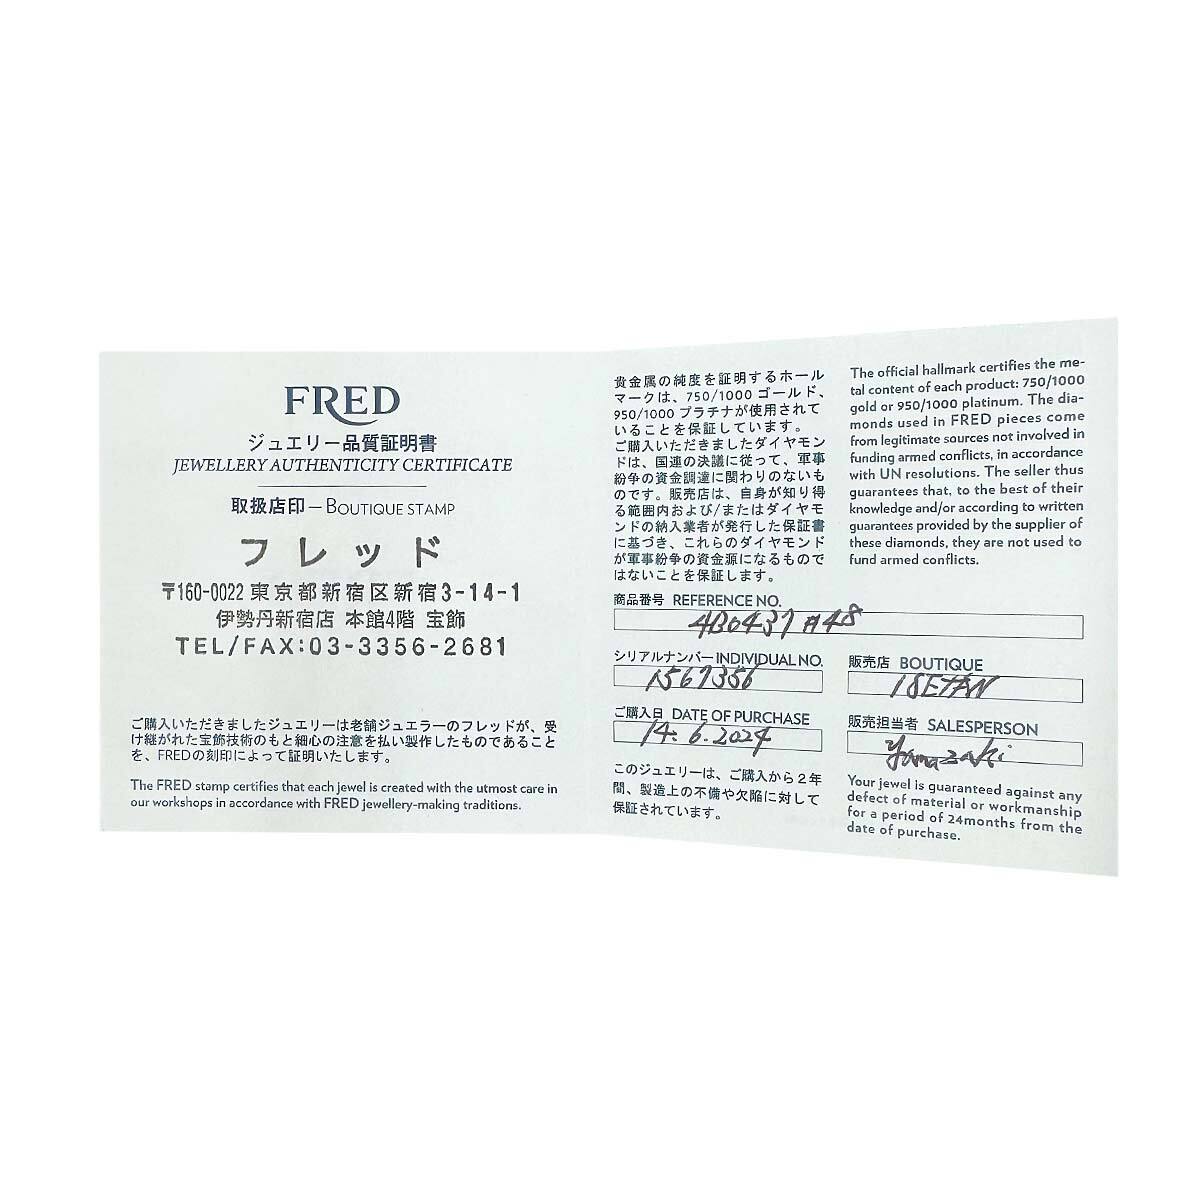 FRED
ジュエリー品質証明書
JEWELLERY AUTHENTICITY CERTIFICATE
取扱店印 — BOUTIQUE STAMP
フレッド
〒160-0022 東京都新宿区新宿3-14-1
伊勢丹新宿店 本館4階 宝飾
TEL/FAX:03-3356-2681
ご購入いただきましたジュエリーは老舗ジュエラーのフレッドが、受
け継がれた宝飾技術のもと細心の注意を払い製作したものであること
を、FREDの刻印によって証明いたします。
The FRED stamp certifies that each jewel is created with the utmost care in
our workshops in accordance with FRED jewellery-making traditions.
貴金属の純度を証明するホール
マークは、750/1000 ゴールド、
950/1000 プラチナが使用されて
いることを保証しています。
ご購入いただきましたダイヤモン
ドは、国連の決議に従って、軍事
紛争の資金調達に関わりのないも
のです。販売店は、自身が知り得
る範囲内および/またはダイヤモ
ンドの納入業者が発行した保証書
に基づき、これらのダイヤモンド
が軍事紛争の資金源になるもので
はないことを保証します。
The official hallmark certifies the me-
tal content of each product: 750/1000
gold or 950/1000 platinum. The dia-
monds used in FRED pieces come
from legitimate sources not involved in
funding armed conflicts, in accordance
with UN resolutions. The seller thus
guarantees that, to the best of their
knowledge and/or according to written
guarantees provided by the supplier of
these diamonds, they are not used to
fund armed conflicts.
商品番号 REFERENCE NO.
4B0437 #48
シリアルナンバー INDIVIDUAL NO.
1567356
販売店 BOUTIQUE
ISETAN
ご購入日 DATE OF PURCHASE
14. 6. 2024
販売担当者 SALESPERSON
Yamazaki
このジュエリーは、ご購入から２年
間、製造上の不備や欠陥に対して
保証されています。
Your jewel is guaranteed against any
defect of material or workmanship
for a period of 24months from the
date of purchase.